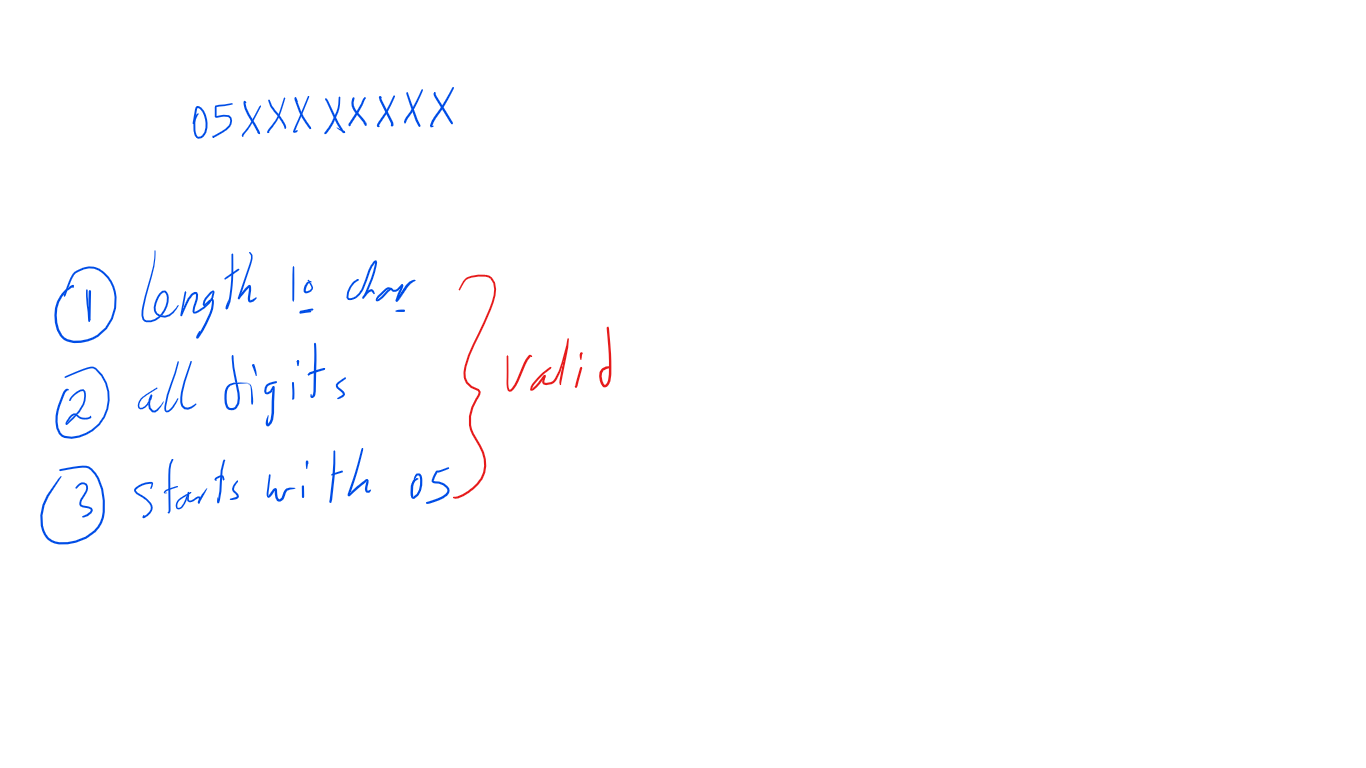 05XXXXXXXX
1 length 10 char
2 all digits
3 starts with 05
valid